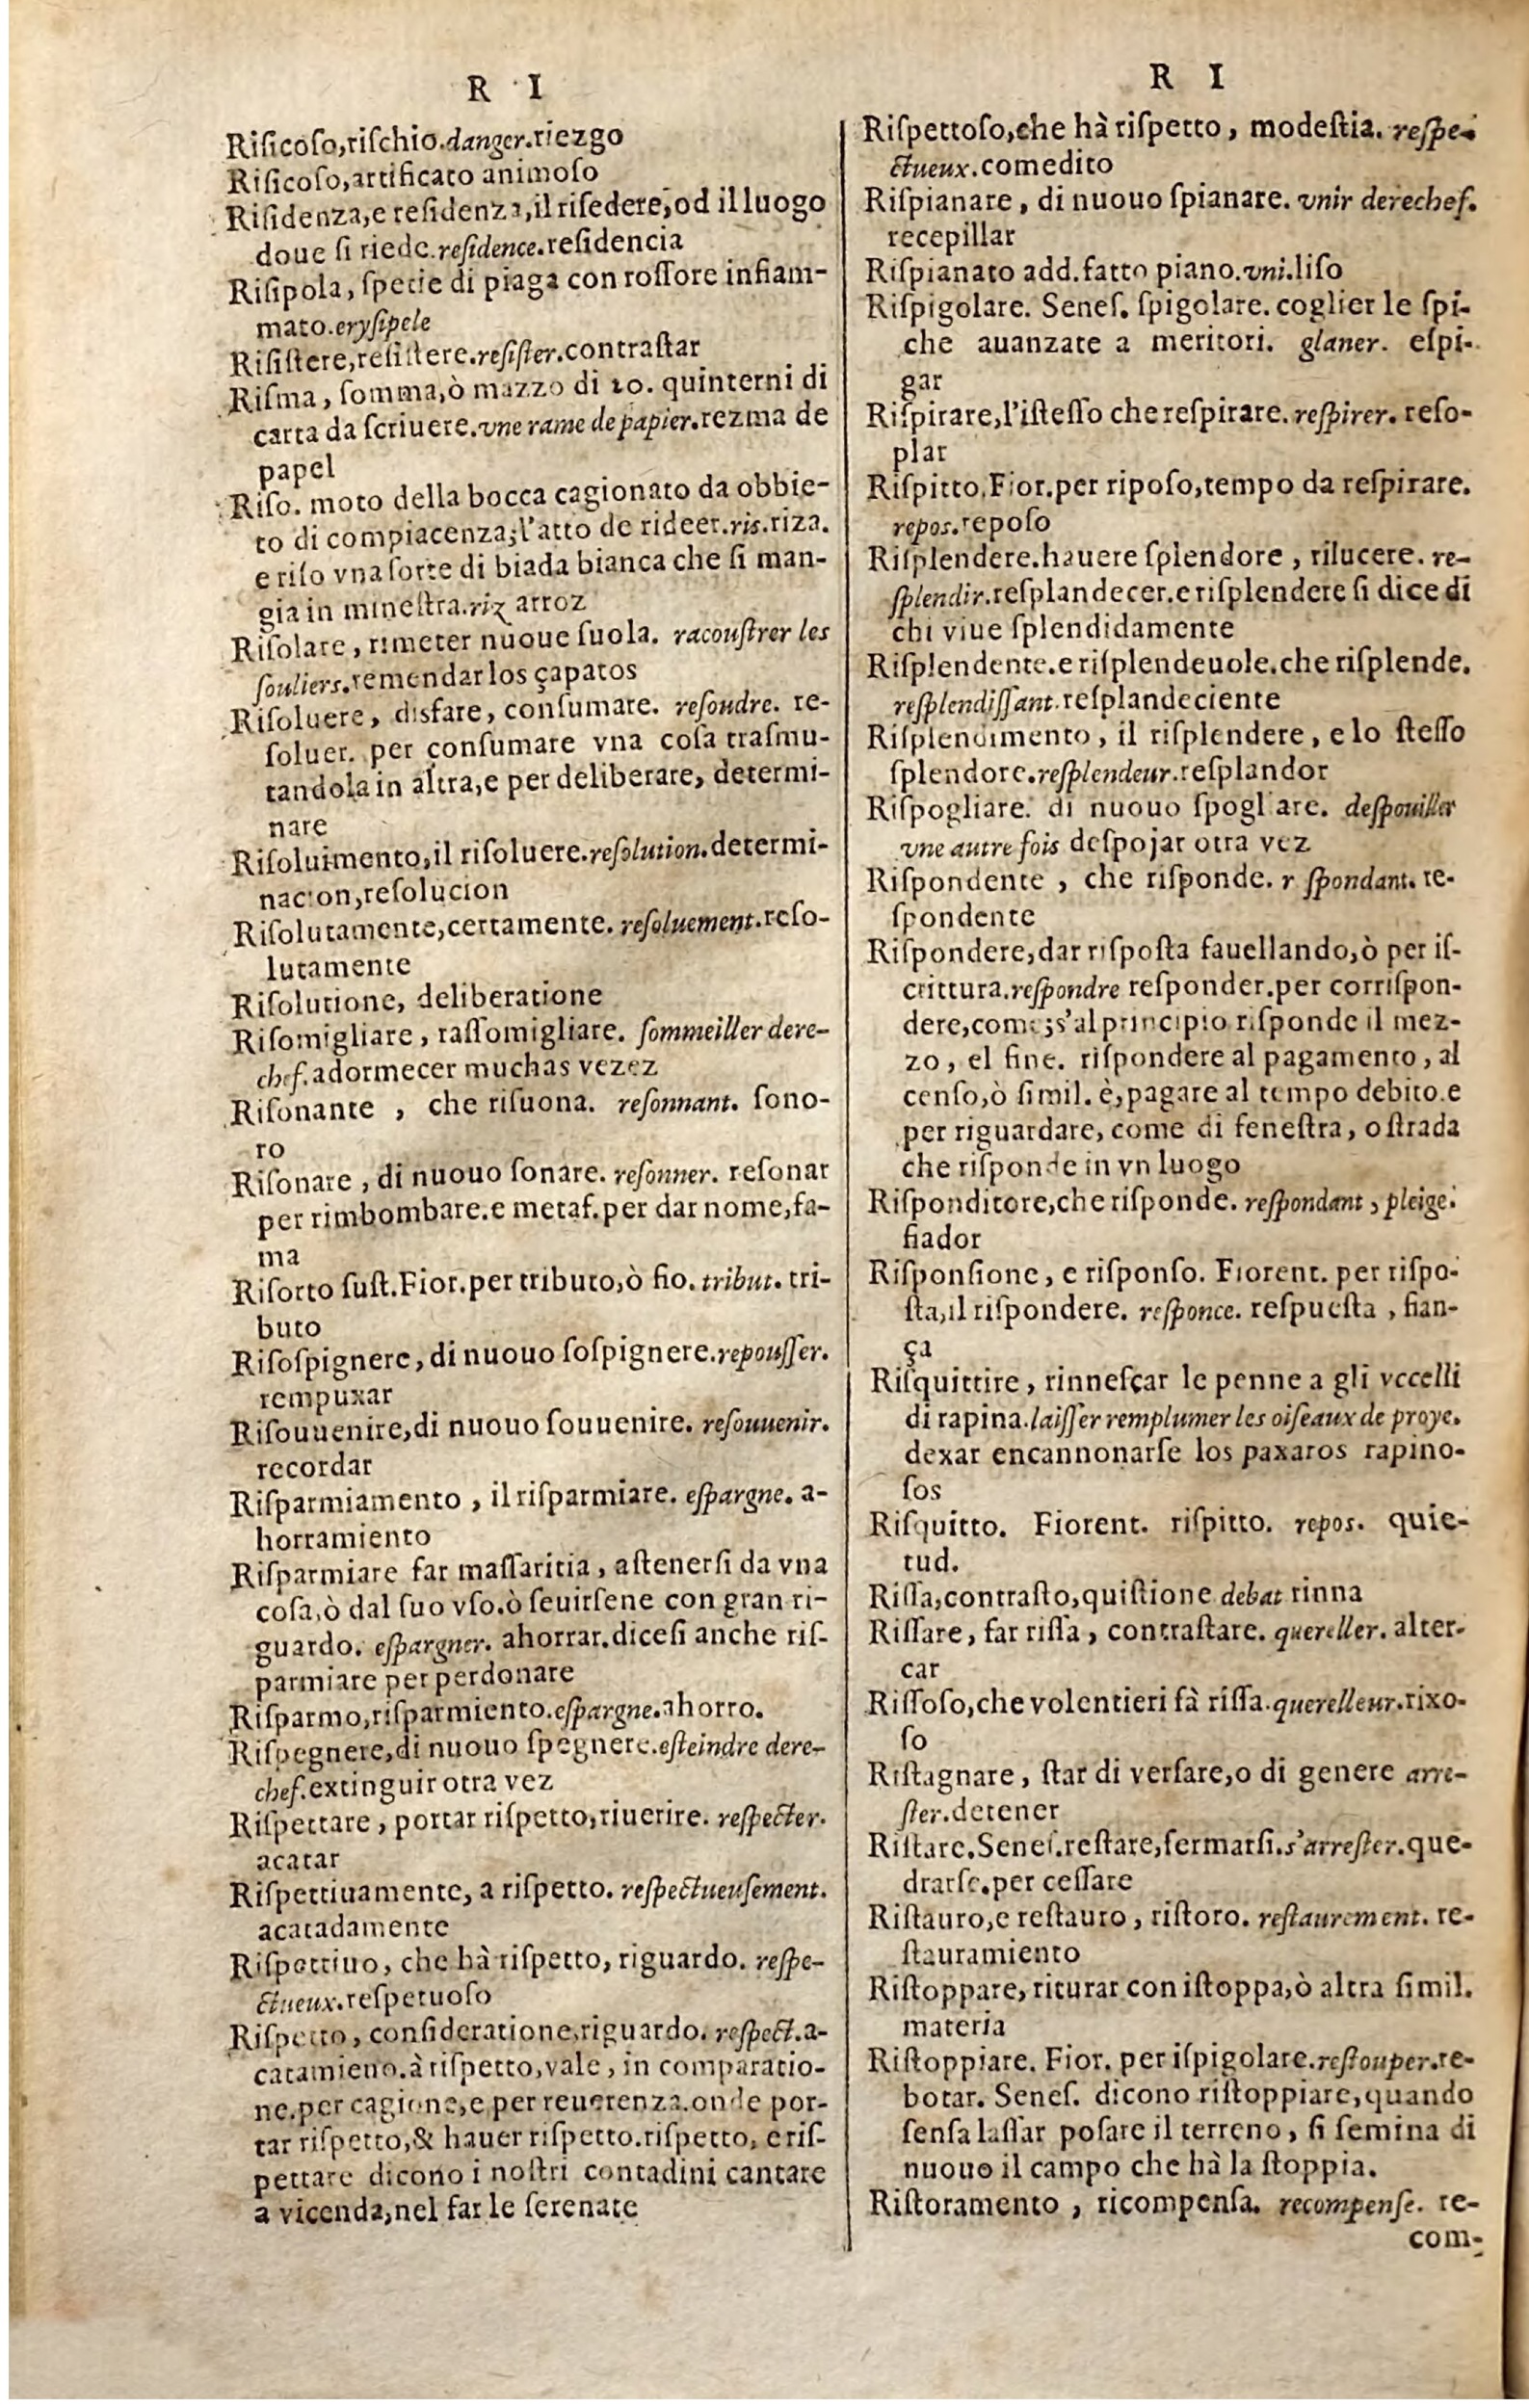 R I
Riſicoſo,riſchio.danger.riezgo
Riſicoſo,artificato animoſo
Riſidenza,e reſidenza,il riſedere,od il luogo
doue ſi riede.reſidence.reſidencia
Riſipola, ſpetie di piaga con roſſore infiam-
mato.eryſipele
Riſiſtere,reſiſtere.reſiſter.contraſtar
Riſma, ſomma,ò mazzo di 20. quinterni di
carta da ſcriuere.vne rame de papier.rezma de
papel
Riſo. moto della bocca cagionato da obbie-
to di compiacenza;l'atto de rideer.ris.riza.
e riſo vna ſorte di biada bianca che ſi man-
gia in mineſtra.riz arroz
Riſolare, rimeter nuoue ſuola. racouſtrer les
ſouliers.remendar los çapatos
Riſoluere, disfare, conſumare. reſoudre. re-
ſoluer. per conſumare vna coſa traſmu-
tandola in altra,e per deliberare, determi-
nare
Riſoluimento,il riſoluere.reſolution.determi-
nacion,reſolucion
Riſolutamente,certamente. reſoluement.reſo-
lutamente
Riſolutione, deliberatione
Riſomigliare, raſſomigliare. ſommeiller dere-
chef.adormecer muchas vezez
Riſonante , che riſuona. reſonnant. ſono-
ro
Riſonare , di nuouo ſonare. reſonner. reſonar
per rimbombare.e metaf.per dar nome,fa-
ma
Riſorto ſuſt.Fior.per tributo,ò fio. tribut. tri-
buto
Riſoſpignere, di nuouo ſoſpignere.repouſſer.
rempuxar
Riſouuenire,di nuouo ſouuenire. reſouuenir.
recordar
Riſparmiamento , il riſparmiare. eſpargne. a-
horramiento
Riſparmiare far maſſaritia, aſtenerſi da vna
coſa,ò dal ſuo vſo.ò ſeuirſene con gran ri-
guardo. eſpargner. ahorrar.diceſi anche riſ-
parmiare per perdonare
Riſparmo,riſparmiento.eſpargne.ahorro.
Riſpegnere,di nuouo ſpegnere.eſteindre dere-
chef.extinguir otra vez
Riſpettare , portar riſpetto,riuerire. reſpecter.
acatar
Riſpettiuamente, a riſpetto. reſpectueuſement.
acatadamente
Riſpettiuo, che hà riſpetto, riguardo. reſpe-
ctueux.reſpetuoſo
Riſpetto, conſideratione,riguardo. reſpect.a-
catamieno.à riſpetto,vale, in comparatio-
ne.per cagione,e per reuerenza.onde por-
tar riſpetto,& hauer riſpetto.riſpetto, e riſ-
pettare dicono i noſtri contadini cantare
a vicenda,nel far le ſerenate
R I
Riſpettoſo,che hà riſpetto, modeſtia. reſpe-
ctueux.comedito
Riſpianare, di nuouo ſpianare. vnir derechef.
recepillar
Riſpianato add.fatto piano.vni.liſo
Riſpigolare. Seneſ. ſpigolare. coglier le ſpi-
che auanzate a meritori. glaner. eſpi-
gar
Riſpirare,l'iſteſſo che reſpirare. reſpirer. reſo-
plar
Riſpitto,Fior.per ripoſo,tempo da reſpirare.
repos.repoſo
Riſplendere.hauere ſplendore , rilucere. re-
ſplendir.reſplandecer.e riſplendere ſi dice di
chi viue ſplendidamente
Riſplendente.e riſplendeuole.che riſplende.
reſplendiſſant.reſplandeciente
Riſplendimento, il riſplendere, e lo ſteſſo
ſplendore.reſplendeur.reſplandor
Riſpogliare. di nuouo ſpogliare. deſpouiller
vne autre fois deſpojar otra vez
Riſpondente , che riſponde. r ſpondant. re-
ſpondente
Riſpondere,dar riſpoſta fauellando,ò per iſ-
crittura.reſpondre reſponder.per corriſpon-
dere,come;s'al principio riſponde il mez-
zo, el fine. riſpondere al pagamento, al
cenſo,ò ſimil. è,pagare al tempo debito.e
per riguardare, come di feneſtra, o ſtrada
che riſponde in vn luogo
Riſponditore,che riſponde. reſpondant, pleige.
fiador
Riſponſione, e riſponſo. Fiorent. per riſpo-
ſta,il riſpondere. reſponce. reſpueſta , fian-
ça
Riſquittire, rinneſcar le penne a gli vccelli
di rapina.laiſſer remplumer les oiſeaux de proye.
dexar encannonarſe los paxaros rapino-
ſos
Riſquitto. Fiorent. riſpitto. repos. quie-
tud.
Riſſa,contraſto,quiſtione debat rinna
Riſſare, far riſſa, contraſtare. quereller. alter-
car
Riſſoſo,che volentieri fà riſſa.querelleur.rixo-
ſo
Riſtagnare, ſtar di verſare,o di genere arre-
ſter.detener
Riſtare.Seneſ.reſtare,fermarſi.s'arreſter.que-
drarſe.per ceſſare
Riſtauro,e reſtauro, riſtoro. reſtaurement. re-
ſtauramiento
Riſtoppare, riturar con iſtoppa,ò altra ſimil.
materia
Riſtoppiare. Fior. per iſpigolare.reſtouper.re-
botar. Seneſ. dicono riſtoppiare,quando
ſenſa laſſar poſare il terreno, ſi ſemina di
nuouo il campo che hà la ſtoppia.
Riſtoramento , ricompenſa. recompenſe. re-
com-